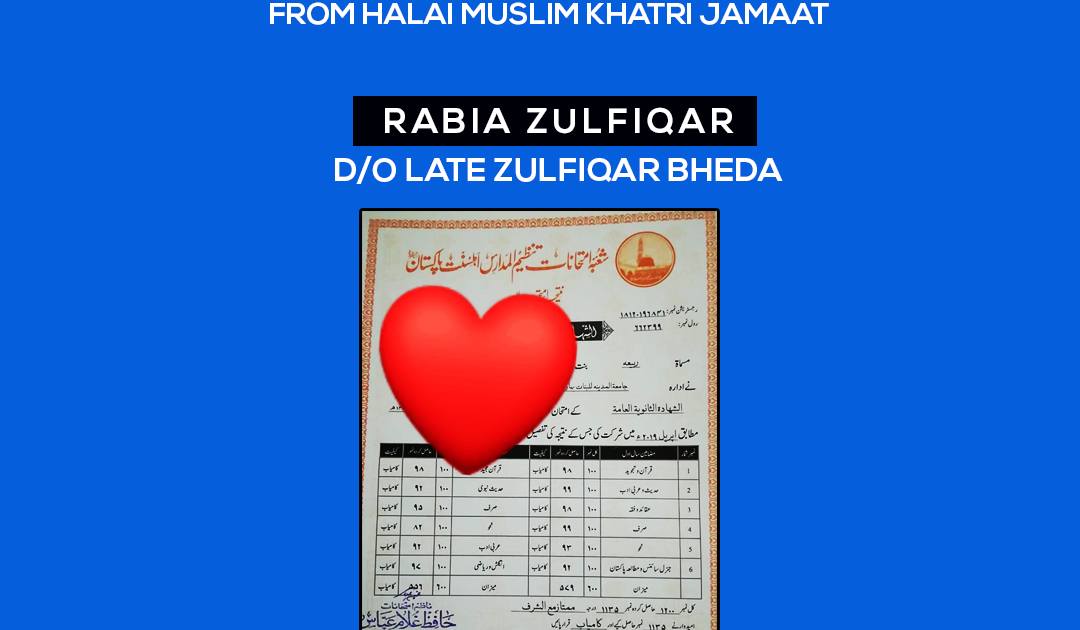 FROM HALAI MUSLIM KHATRI JAMAAT
RABIA ZULFIQAR
D/O LATE ZULFIQAR BHEDA
شعبۂ امتحانات تنظیم المدارس اہلسنت پاکستان
رجسٹریشن نمبر: ۱۸۱۲۰۱۹۶۸۳۱
رول نمبر: ۶۶۲۳۹۹
مسماۃ ربیعہ بنت
نے ادارہ جامعۃ المدینہ للبنات
الشھادۃ الثانویۃ العامۃ کے امتحان
مطابق اپریل ۲۰۱۹ء میں شرکت کی جس کے نتیجہ کی تفصیل
نمبر شمار مضامین سال اول کل نمبر حاصل کردہ نمبر کیفیت حاصل کردہ نمبر کیفیت
1 قرآن و تجوید ۱۰۰ ۹۸ کامیاب قرآن مجید ۱۰۰ ۹۸ کامیاب
2 حدیث و عربی ادب ۱۰۰ ۹۹ کامیاب حدیث نبوی ۱۰۰ ۹۲ کامیاب
3 عقائد و فقہ ۱۰۰ ۹۸ کامیاب صرف ۱۰۰ ۹۵ کامیاب
4 صرف ۱۰۰ ۹۹ کامیاب نحو ۱۰۰ ۸۲ کامیاب
5 نحو ۱۰۰ ۹۳ کامیاب عربی ادب ۱۰۰ ۹۲ کامیاب
6 جنرل سائنس و مطالعہ پاکستان ۱۰۰ ۹۲ کامیاب انگلش و ریاضی ۱۰۰ ۹۷ کامیاب
میزان ۶۰۰ ۵۷۹ کامیاب میزان ۶۰۰ ۵۵۶ کامیاب
کل نمبر ۱۲۰۰ حاصل کردہ نمبر ۱۱۳۵ درجہ ممتاز مع الشرف
امیدوار نے ۱۱۳۵ نمبر حاصل کیے اور کامیاب قرار پائیں
ناظم امتحانات
حافظ غلام عباس